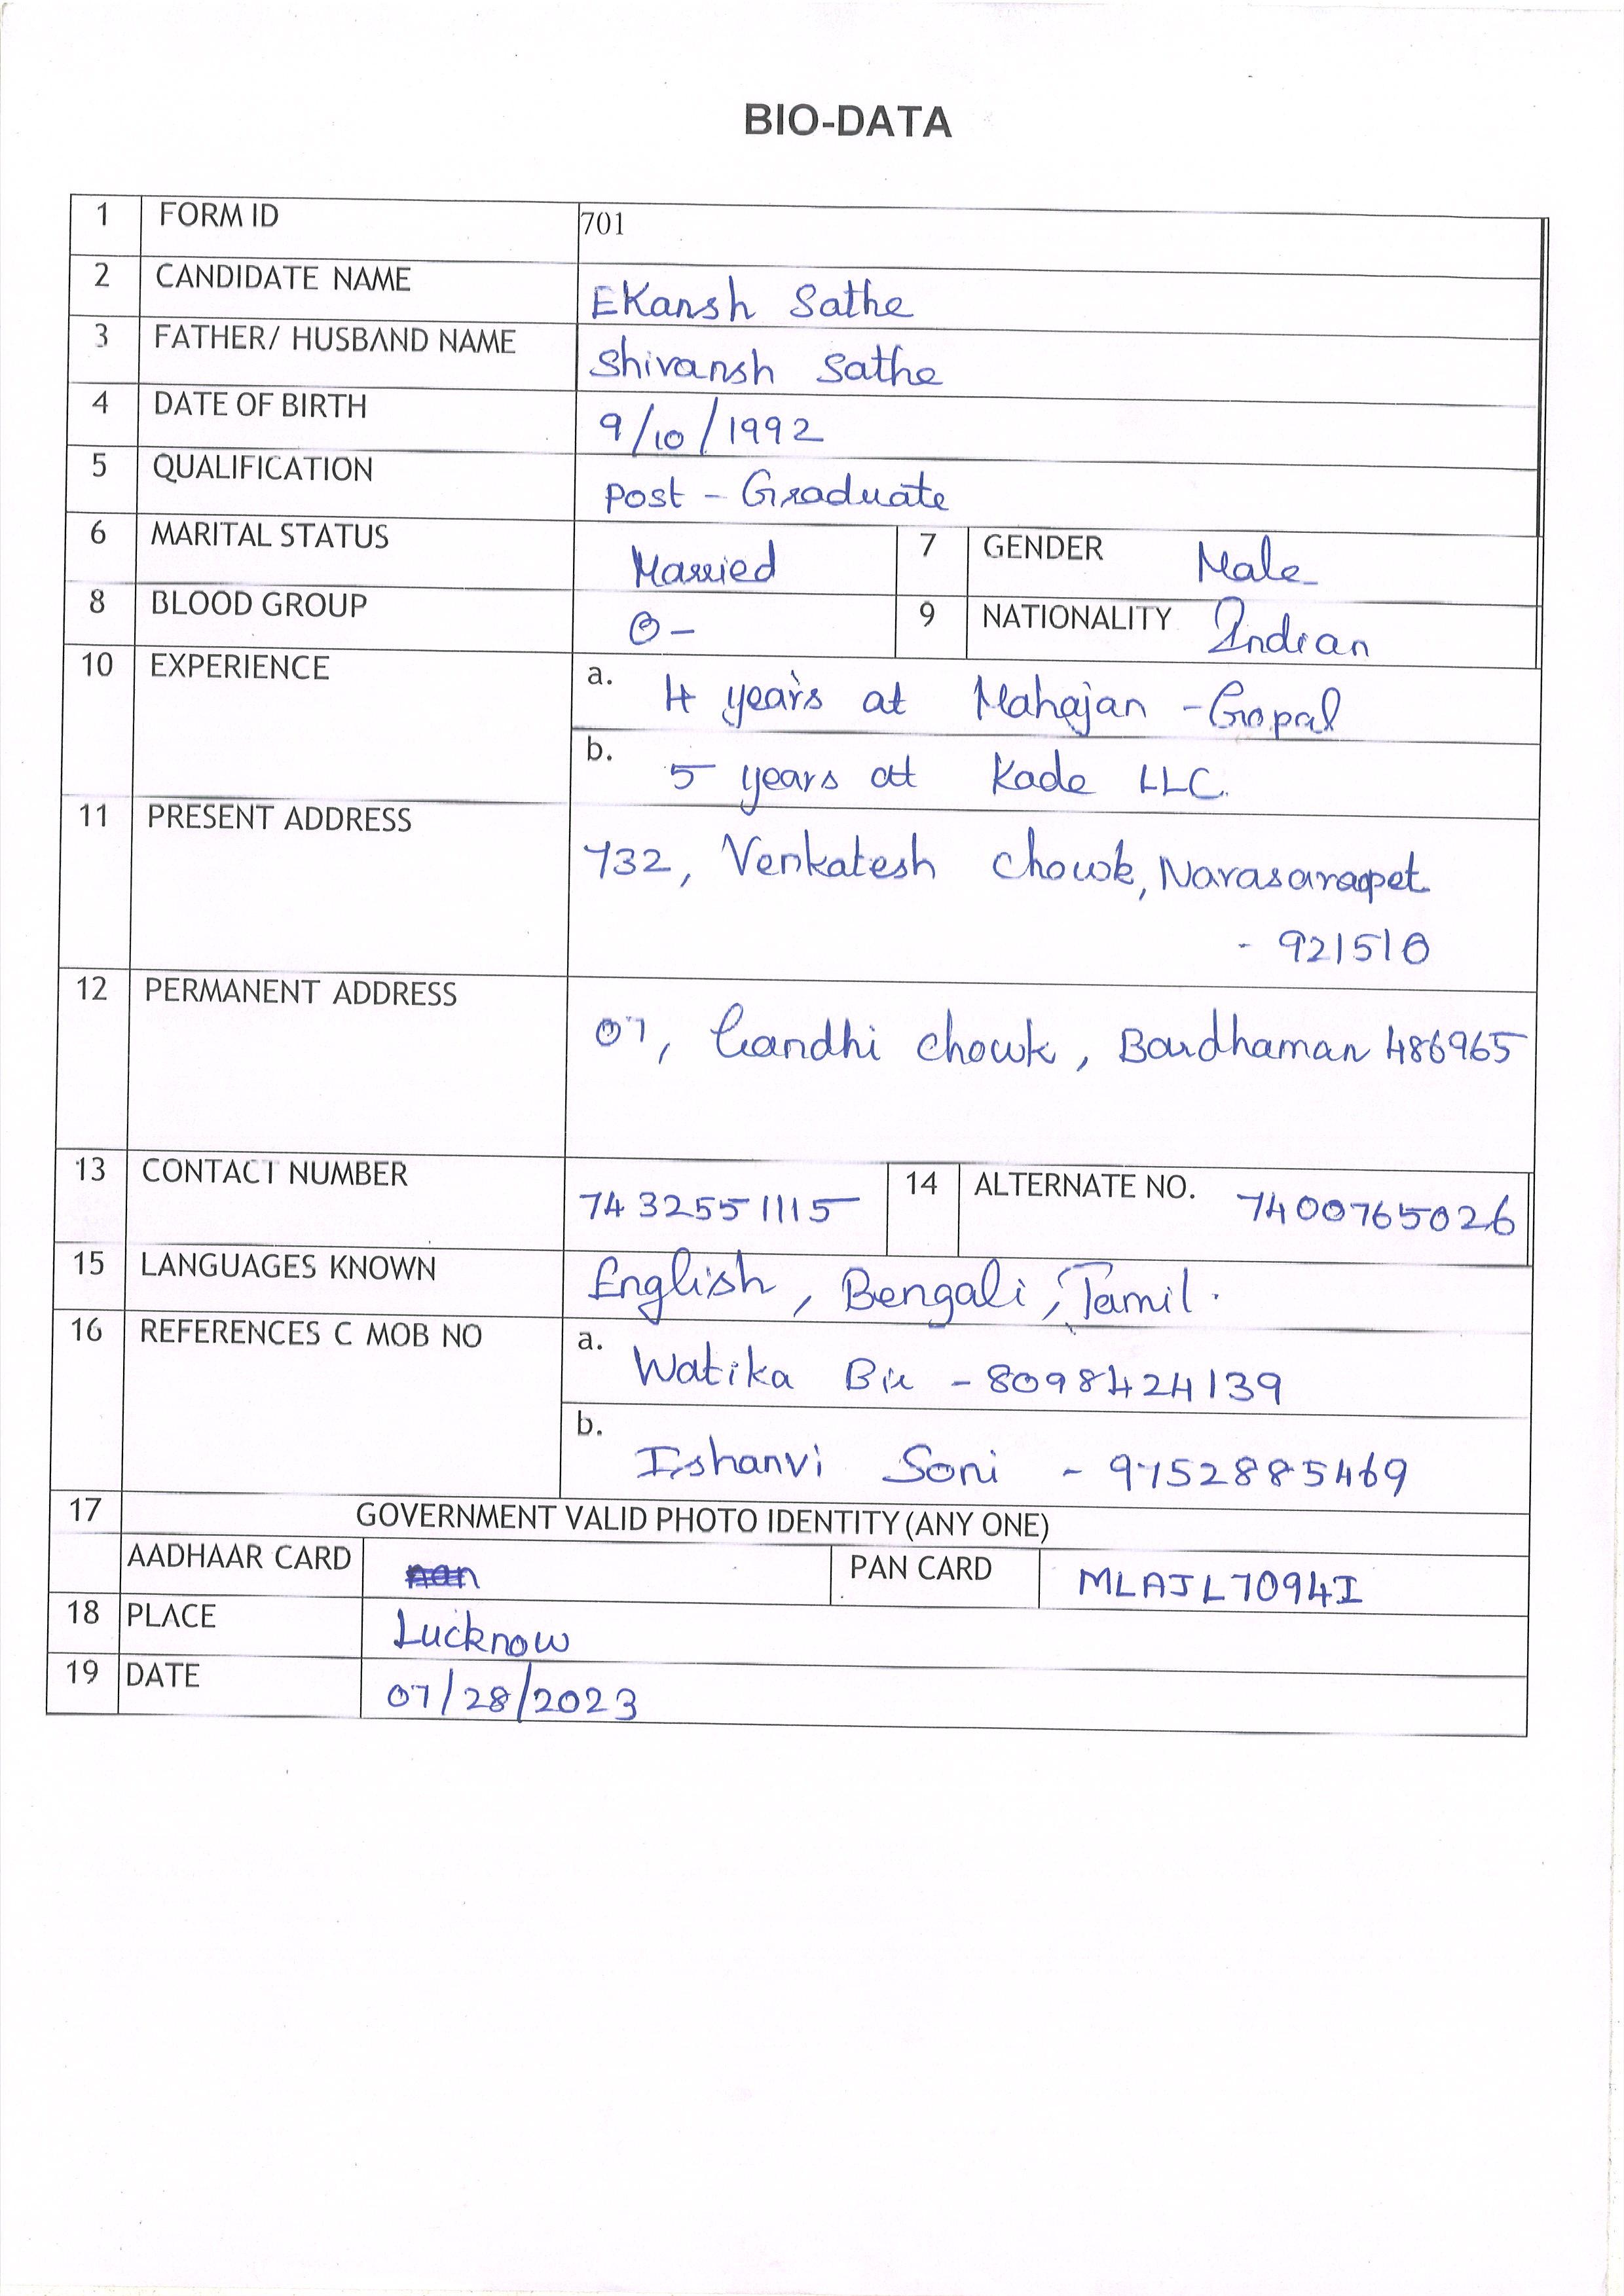 BIO-DATA
1 FORM ID 701
2 CANDIDATE NAME Ekansh Sathe
3 FATHER/ HUSBAND NAME Shivansh Sathe
4 DATE OF BIRTH 9/10/1992
5 QUALIFICATION Post - Graduate
6 MARITAL STATUS Married 7 GENDER Male
8 BLOOD GROUP O- 9 NATIONALITY Indian
10 EXPERIENCE a. 4 years at Mahajan - Gopal
b. 5 years at Kade LLC.
11 PRESENT ADDRESS 732, Venkatesh Chowk, Narasaraopet
- 921510
12 PERMANENT ADDRESS 07, Gandhi chowk, Bardhaman 486965
13 CONTACT NUMBER 7432551115 14 ALTERNATE NO. 7400765026
15 LANGUAGES KNOWN English, Bengali, Tamil.
16 REFERENCES C MOB NO a. Watika Bir - 8098424139
b. Ishanvi Soni - 9752885469
17 GOVERNMENT VALID PHOTO IDENTITY (ANY ONE)
AADHAAR CARD nan PAN CARD MLAJL7094I
18 PLACE Lucknow
19 DATE 07/28/2023